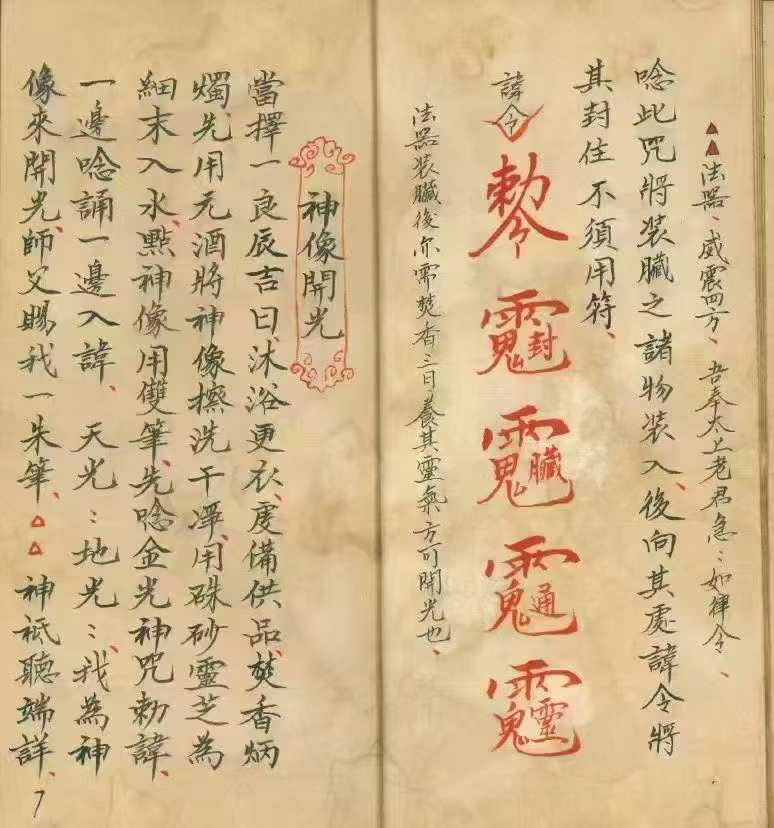 ▲▲法器、威震四方、吾奉太上老君急:如律令、
唸此咒將装臟之諸物装入、後向其處諱令將
其封住不須用符、
諱令
勅令
法器装臟後亦需焚香三日養其靈氣方可開光也、
神像開光
當擇一良辰吉日、沐浴更衣、虔備供品、焚香炳
燭、先用元酒將神像擦洗干淨、用硃砂靈芝為
細末入水、點神像用雙筆、先唸金光神咒勅諱、
一邊唸誦一邊入諱、天光::地光::、我為神
像來開光、師父賜我一朱筆、△△神祇聽端詳、
7